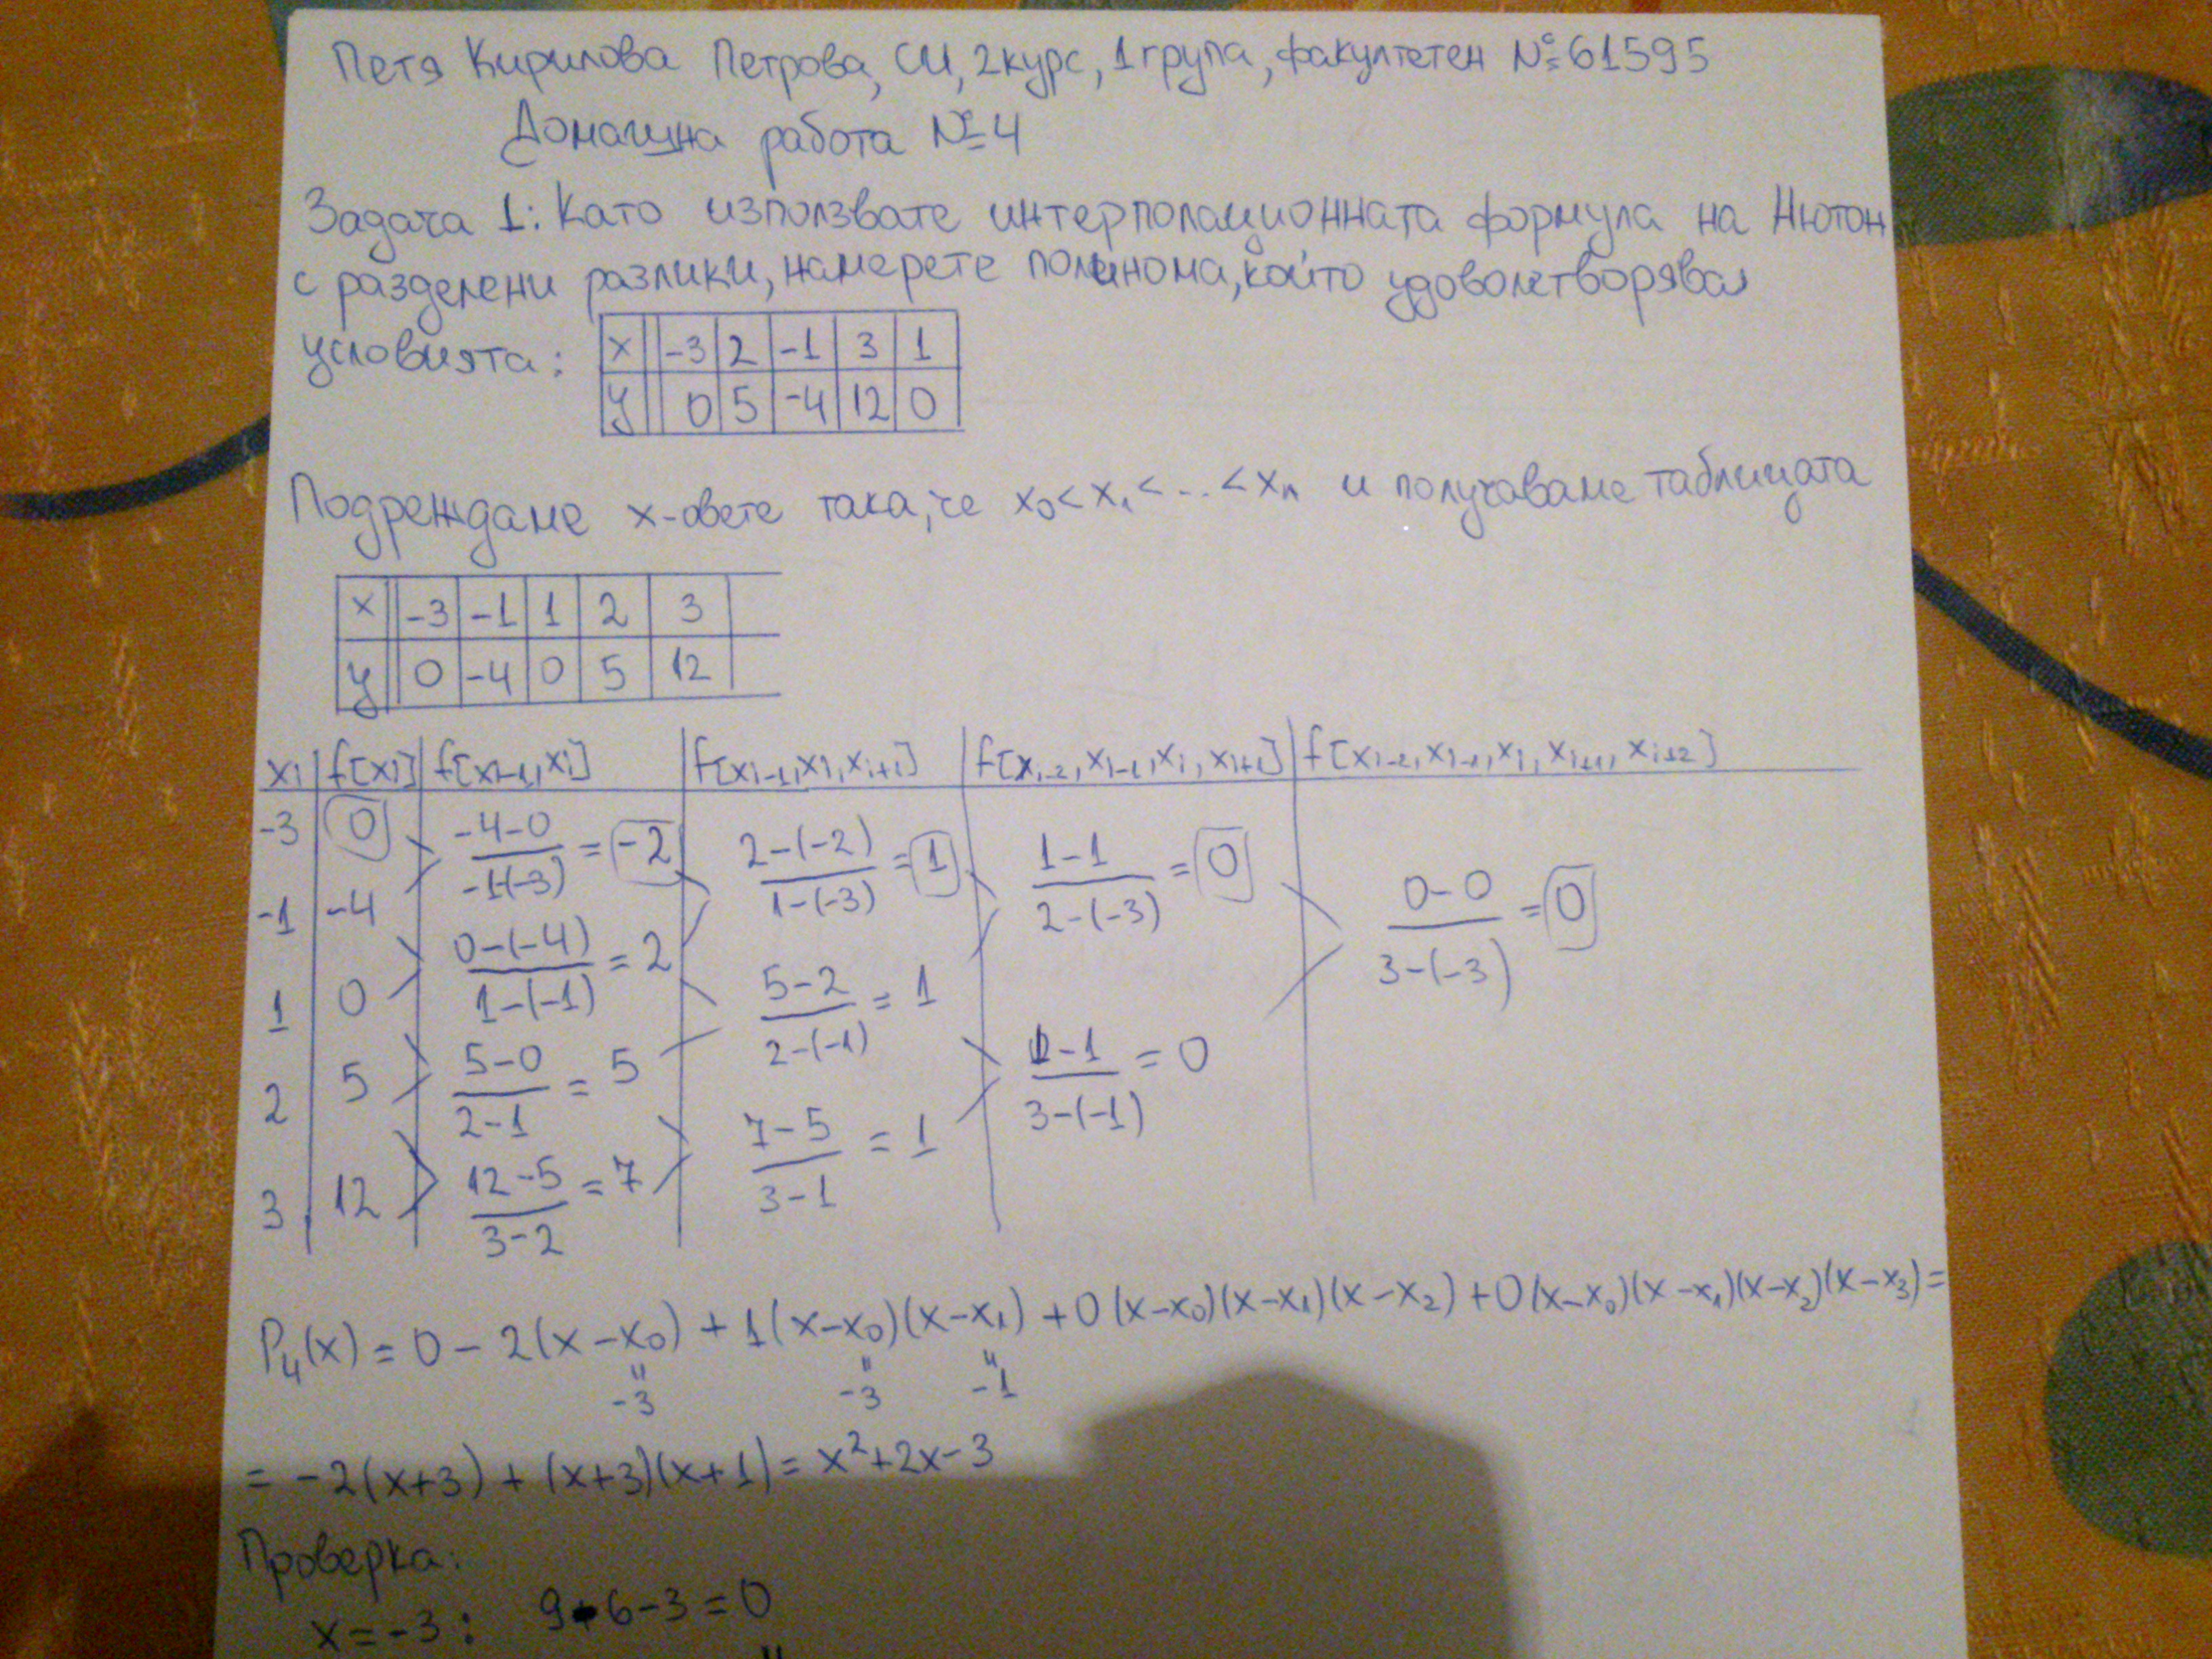 Петя Кирилова Петрова, СИ, 2 курс, 1 група, факултетен № 61595
Домашна работа № 4
Задача 1: Като използвате интерполационната формула на Нютон
с разделени разлики, намерете полинома, който удовлетворява
условията:
x | -3 | 2 | -1 | 3 | 1
y | 0 | 5 | -4 | 12 | 0
Подреждаме x-овете така, че x₀ < x₁ < ... < xₙ и получаваме таблицата
x | -3 | -1 | 1 | 2 | 3
y | 0 | -4 | 0 | 5 | 12
xi | f[xi] | f[xi-1, xi] | f[xi-1, xi, xi+1] | f[xi-2, xi-1, xi, xi+1] | f[xi-2, xi-1, xi, xi+1, xi+2]
-3 | 0 | (-4-0)/(-1-(-3)) = -2 | (2-(-2))/(1-(-3)) = 1 | (1-1)/(2-(-3)) = 0 | (0-0)/(3-(-3)) = 0
-1 | -4 | (0-(-4))/(1-(-1)) = 2 | (5-2)/(2-(-1)) = 1 | (1-1)/(3-(-1)) = 0
1 | 0 | (5-0)/(2-1) = 5 | (7-5)/(3-1) = 1
2 | 5 | (12-5)/(3-2) = 7
3 | 12
P₄(x) = 0 - 2(x-x₀) + 1(x-x₀)(x-x₁) + 0(x-x₀)(x-x₁)(x-x₂) + 0(x-x₀)(x-x₁)(x-x₂)(x-x₃) =
" " "
-3 -3 -1
= -2(x+3) + (x+3)(x+1) = x²+2x-3
Проверка:
x = -3: 9-6-3 = 0